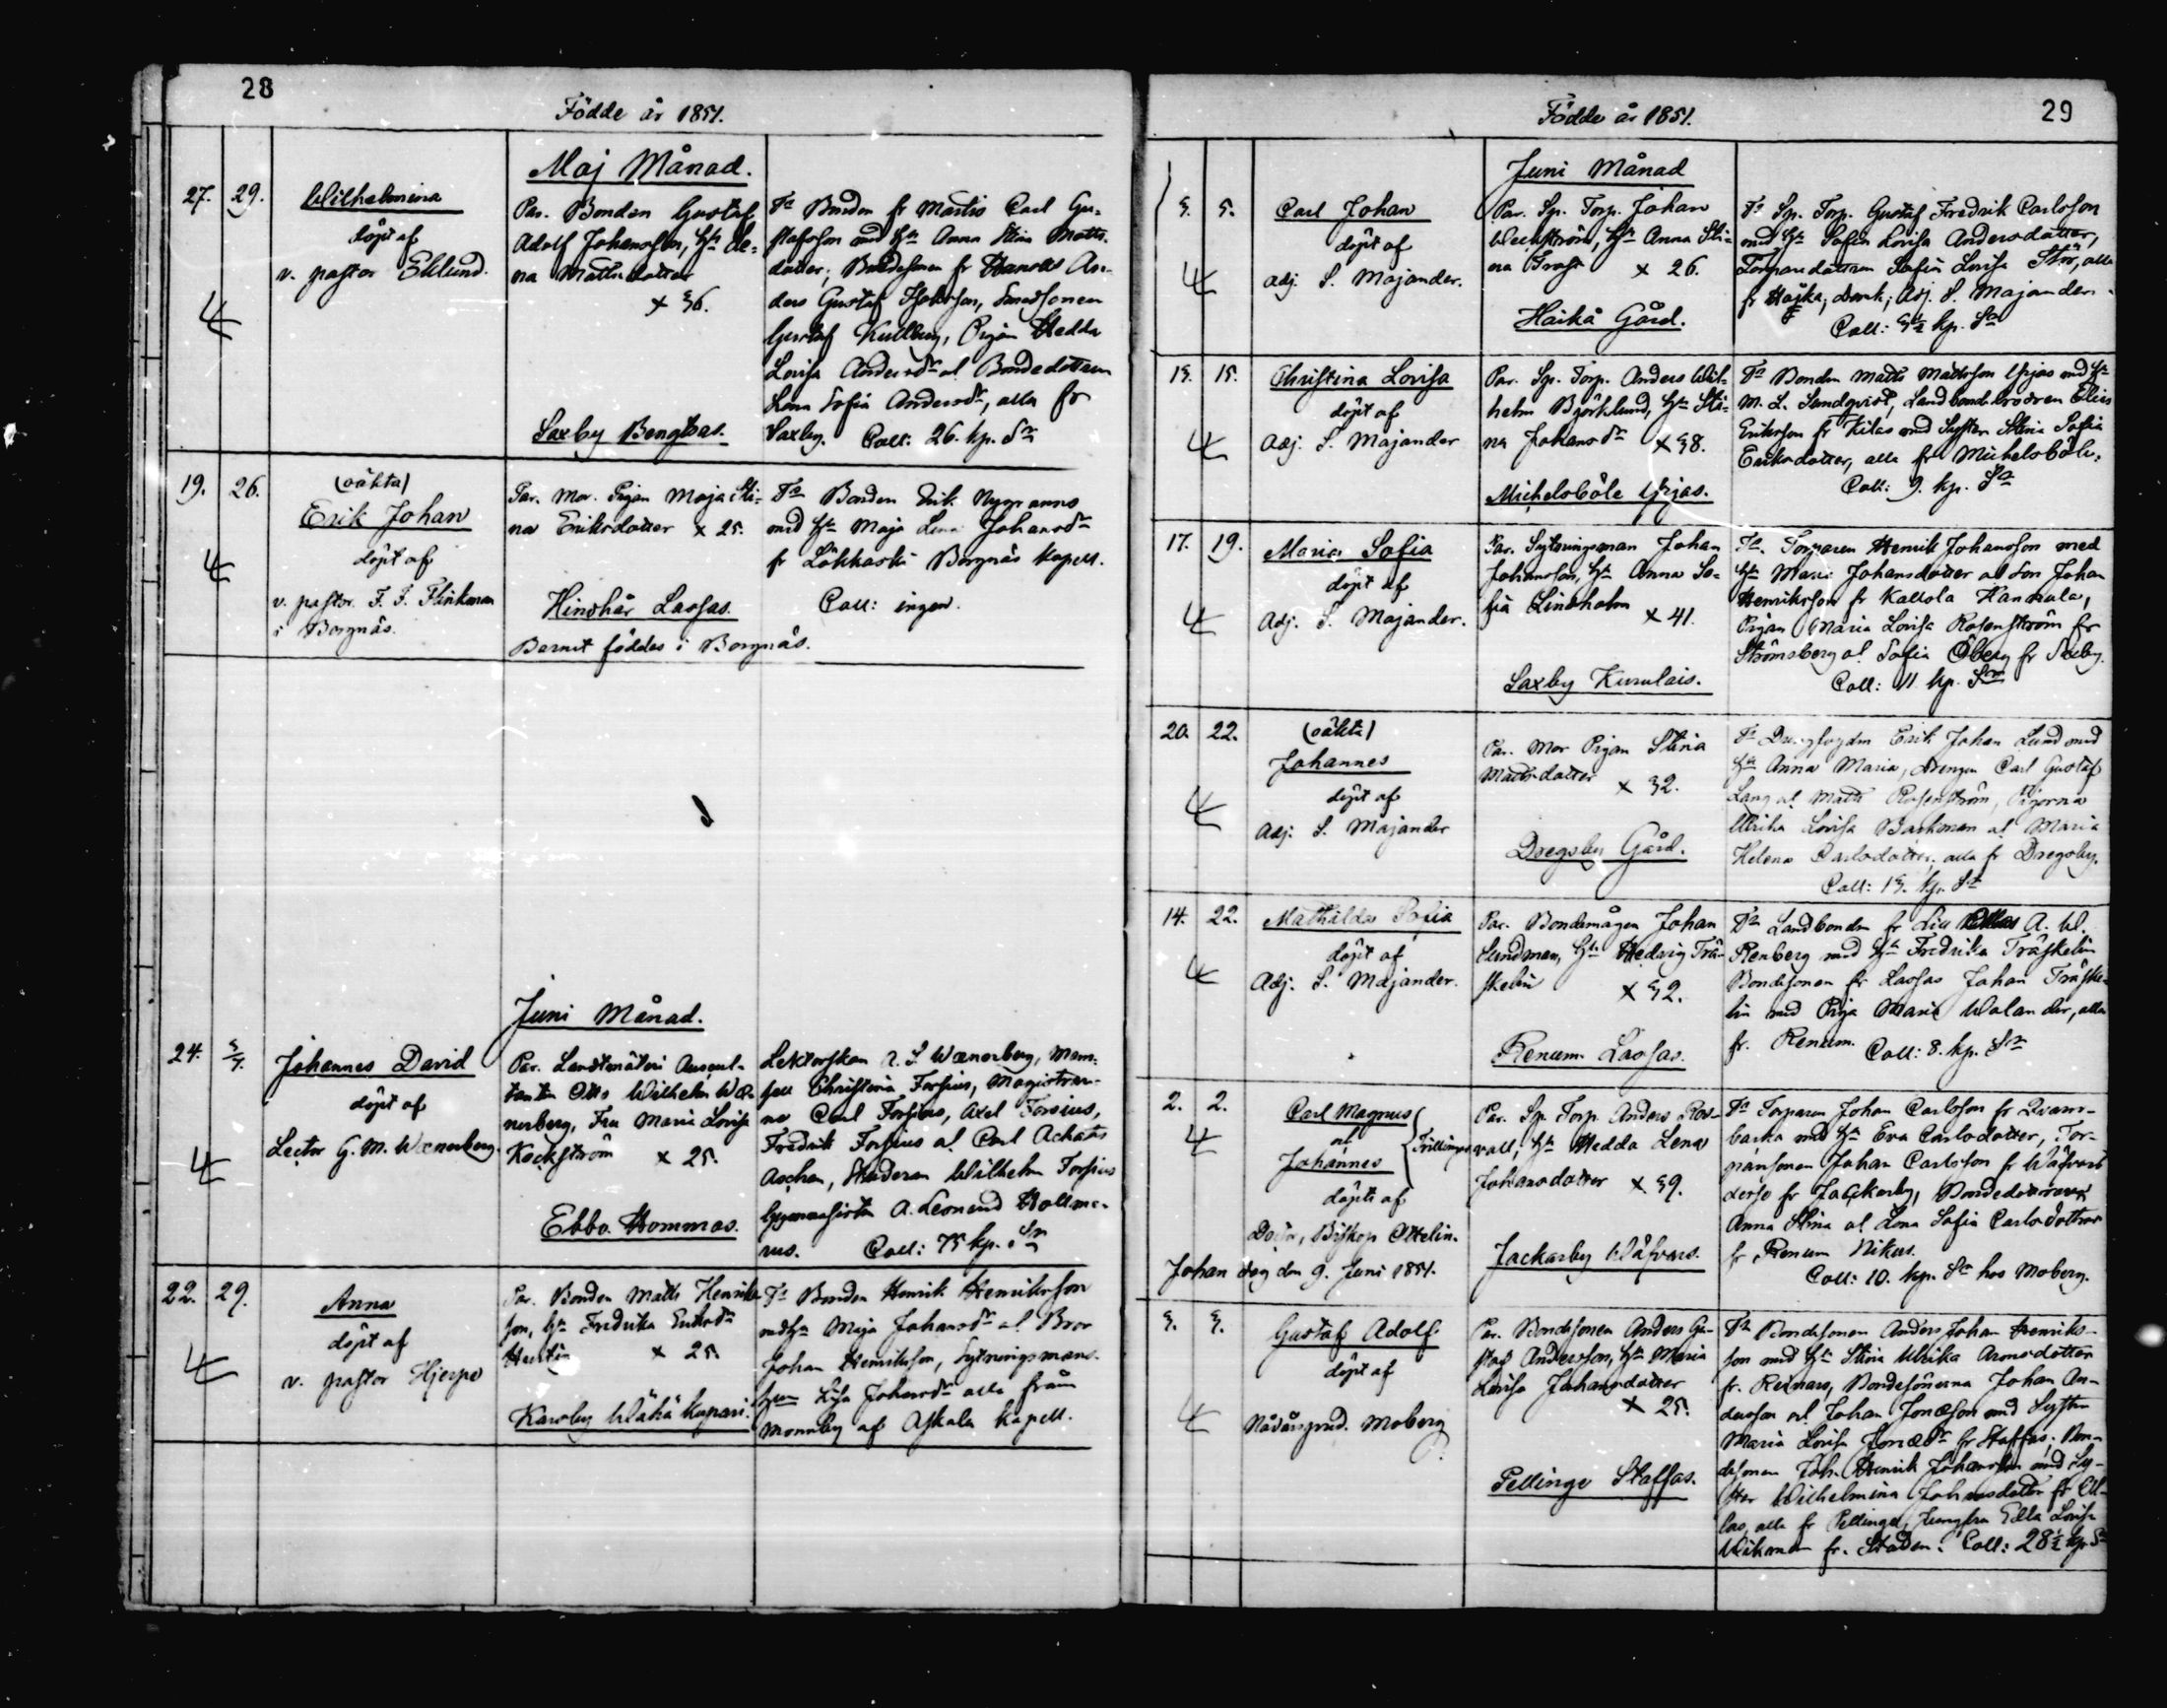 28
Födde år 1851.
Maj Månad.
27. 29. Wilhelmina
döpt af
v. pastor Eklund.
Par. Bonden Gustaf
Adolf Johansson, h:u Le-
na Mattsdotter
x 36.
Saxby Bengtsas.
F:r Bonden fr Martis Carl Gu-
stafsson med h:u Anna Stina Matts-
dotter; Bondesonen fr Hannus An-
ders Gustaf
Gustaf Kullberg, Pigan Hedda
Lovisa Andersd:r o Bondedottern
Lena Sofia Andersd:r, alla fr
Saxby. Coll: 26. kp. S:r
19. 26. (oäkta)
Erik Johan
döpt af
v. pastor F. F. Flinkman
i Borgnäs.
Par. Mor. Pigan Maja Sti-
na Eriksdotter x 25.
Hindhår Lassas.
Barnet föddes i Borgnäs.
F:r Bonden Erik Nygranns
med h:u Maja Lena Johansd:r
fr Lökkoski Borgnäs kapell.
Coll: ingen.
Juni Månad.
24. 3/7. Johannes David
döpt af
Lector G. M. Wænerberg.
Par. Landtmäteri Auscul-
tanten Otto Wilhelm Wæ-
nerberg, Fru Maria Lovisa
Kockström x 25.
Ebbo. Hommas.
Lektorskan A. S. Wænerberg, Mam-
sell Christina Forsius, Magistrar-
ne Carl Forsius, Axel Forsius,
Fredrik Forsius o Carl Achates
Aschan, Studeran Wilhelm Forsius
Gymnasisten A. Leonard Hollme-
rus. Coll: 75 kp. S:r
22. 29. Anna
döpt af
v. pastor Hjerpe
Par. Bonden Matts Henriks-
son, h:u Fredrika Eriksd:r
x 25.
Karsby Wähä kupari.
F:r Bonden Henrik Henriksson
med h:u Maja Johansd:r o Bror
Johan Henriksson, Sytningsmans-
h:u Lisa Johansd:r alla från
Monnby af Askola kapell.
29
Födde år 1851.
Juni Månad
3. 5. Carl Johan
döpt af
Adj. S. Majander.
Par. Sp. Torp. Johan
Weckström, h:u Anna Sti-
na Frost x 26.
Haikå Gård.
F:r Sp. Torp. Gustaf Fredrik Carlsson
med h:u Sofia Lovisa Andersdotter,
Torparedottren Sofia Lovisa Strö, alla
fr Haika; Adj. S. Majander.
Coll: 3 1/2 kp. S:r
13. 15. Christina Lovisa
döpt af
Adj. S. Majander
Par. Sp. Torp. Anders Wil-
helm Björklund, h:u Sti-
na Johansd:r x 38.
Michelsböle Yrjas.
F:r Bonden Matts Mattsson Yrjas med h:u
M. L. Sundqvist, Landbondebrodren Elias
Eriksson fr Kilas med Syster Stina Sofia
Eriksdotter, alla fr Michelsböle.
Coll: 9. kp. S:r
17. 19. Maria Sofia
döpt af
Adj. S. Majander.
Par. Sytningsman Johan
Johansson, h:u Anna So-
fia Lindholm x 41.
Saxby Kurulais.
F:r Torparen Henrik Johansson med
h:u Maria Johansdotter o Son Johan
Henriksson fr Kallola Hannula,
Pigan Maria Lovisa Rosenström fr
Strömsberg o Sofia Öberg fr Saxby.
Coll: 11 kp. S:r
20. 22. (oäkta)
Johannes
döpt af
Adj. S. Majander
Par. Mor Pigan Stina
Mattsdotter x 32.
Dregsby Gård.
F:r Erik Johan Lund med
h:u Anna Maria, drengen Carl Gustaf
Lang o Matts Rosenström, Pigorna
Ulrika Lovisa Backman o Maria
Helena Carlsdotter, alla fr Dregsby.
Coll: 13. kp. S:r
14. 22. Mathilda Sofia
döpt af
Adj. S. Majander.
Par. Bondemågen Johan
Sundman, h:u Hedvig Trä-
skelin x 32.
Renum. Lassas.
F:r Landbonden fr A. W.
Renberg med h:u Fredrika Träskelin
Bondesonen fr Lassas Johan Träske-
lin med Piga Maria Walander, alla
fr. Renum. Coll: 8. kp. S:r
2. 2. Carl Magnus
o
Johannes
Trillingar
döpte af
Doctor, Biskop Ottelin.
Johan dog den 9. Juni 1851.
Par. Sp. Torp. Anders Ros-
vall, h:u Hedda Lena
Johansdotter x 39.
Jackarby Wäfvars.
F:r Torparen Johan Carlsson fr Qvarn-
backa med h:u Eva Carlsdotter, Tor-
paresonen Johan Carlsson fr Wäfvars
fr Jackarby, Bondedöttrarna
Anna Stina o Lena Sofia Carlsdöttrar
fr Renum Nikus.
Coll: 10. kp. S:r hos Moberg.
3. 3. Gustaf Adolf
döpt af
Nådårspred. Moberg
Par. Bondesonen Anders Gu-
staf Andersson, h:u Maria
Lovisa Johansdotter
x 25.
Pellinge Staffas.
F:r Bondesonen Anders Johan Henriks-
son med h:u Stina Ulrika Aronsdotter
fr. Reinars, Bondesönerna Johan An-
dersson o Johan Jonæson med Syster
Maria Lovisa Jonæd:r fr Staffas; Bon-
desonen Joh. Henrik Johansson med Sy-
ster Wilhelmina Johansdotter fr
alla fr Pellinge, Jungfru Edla Lovisa
Wikman fr. Staden. Coll: 28 1/2 kp S:r